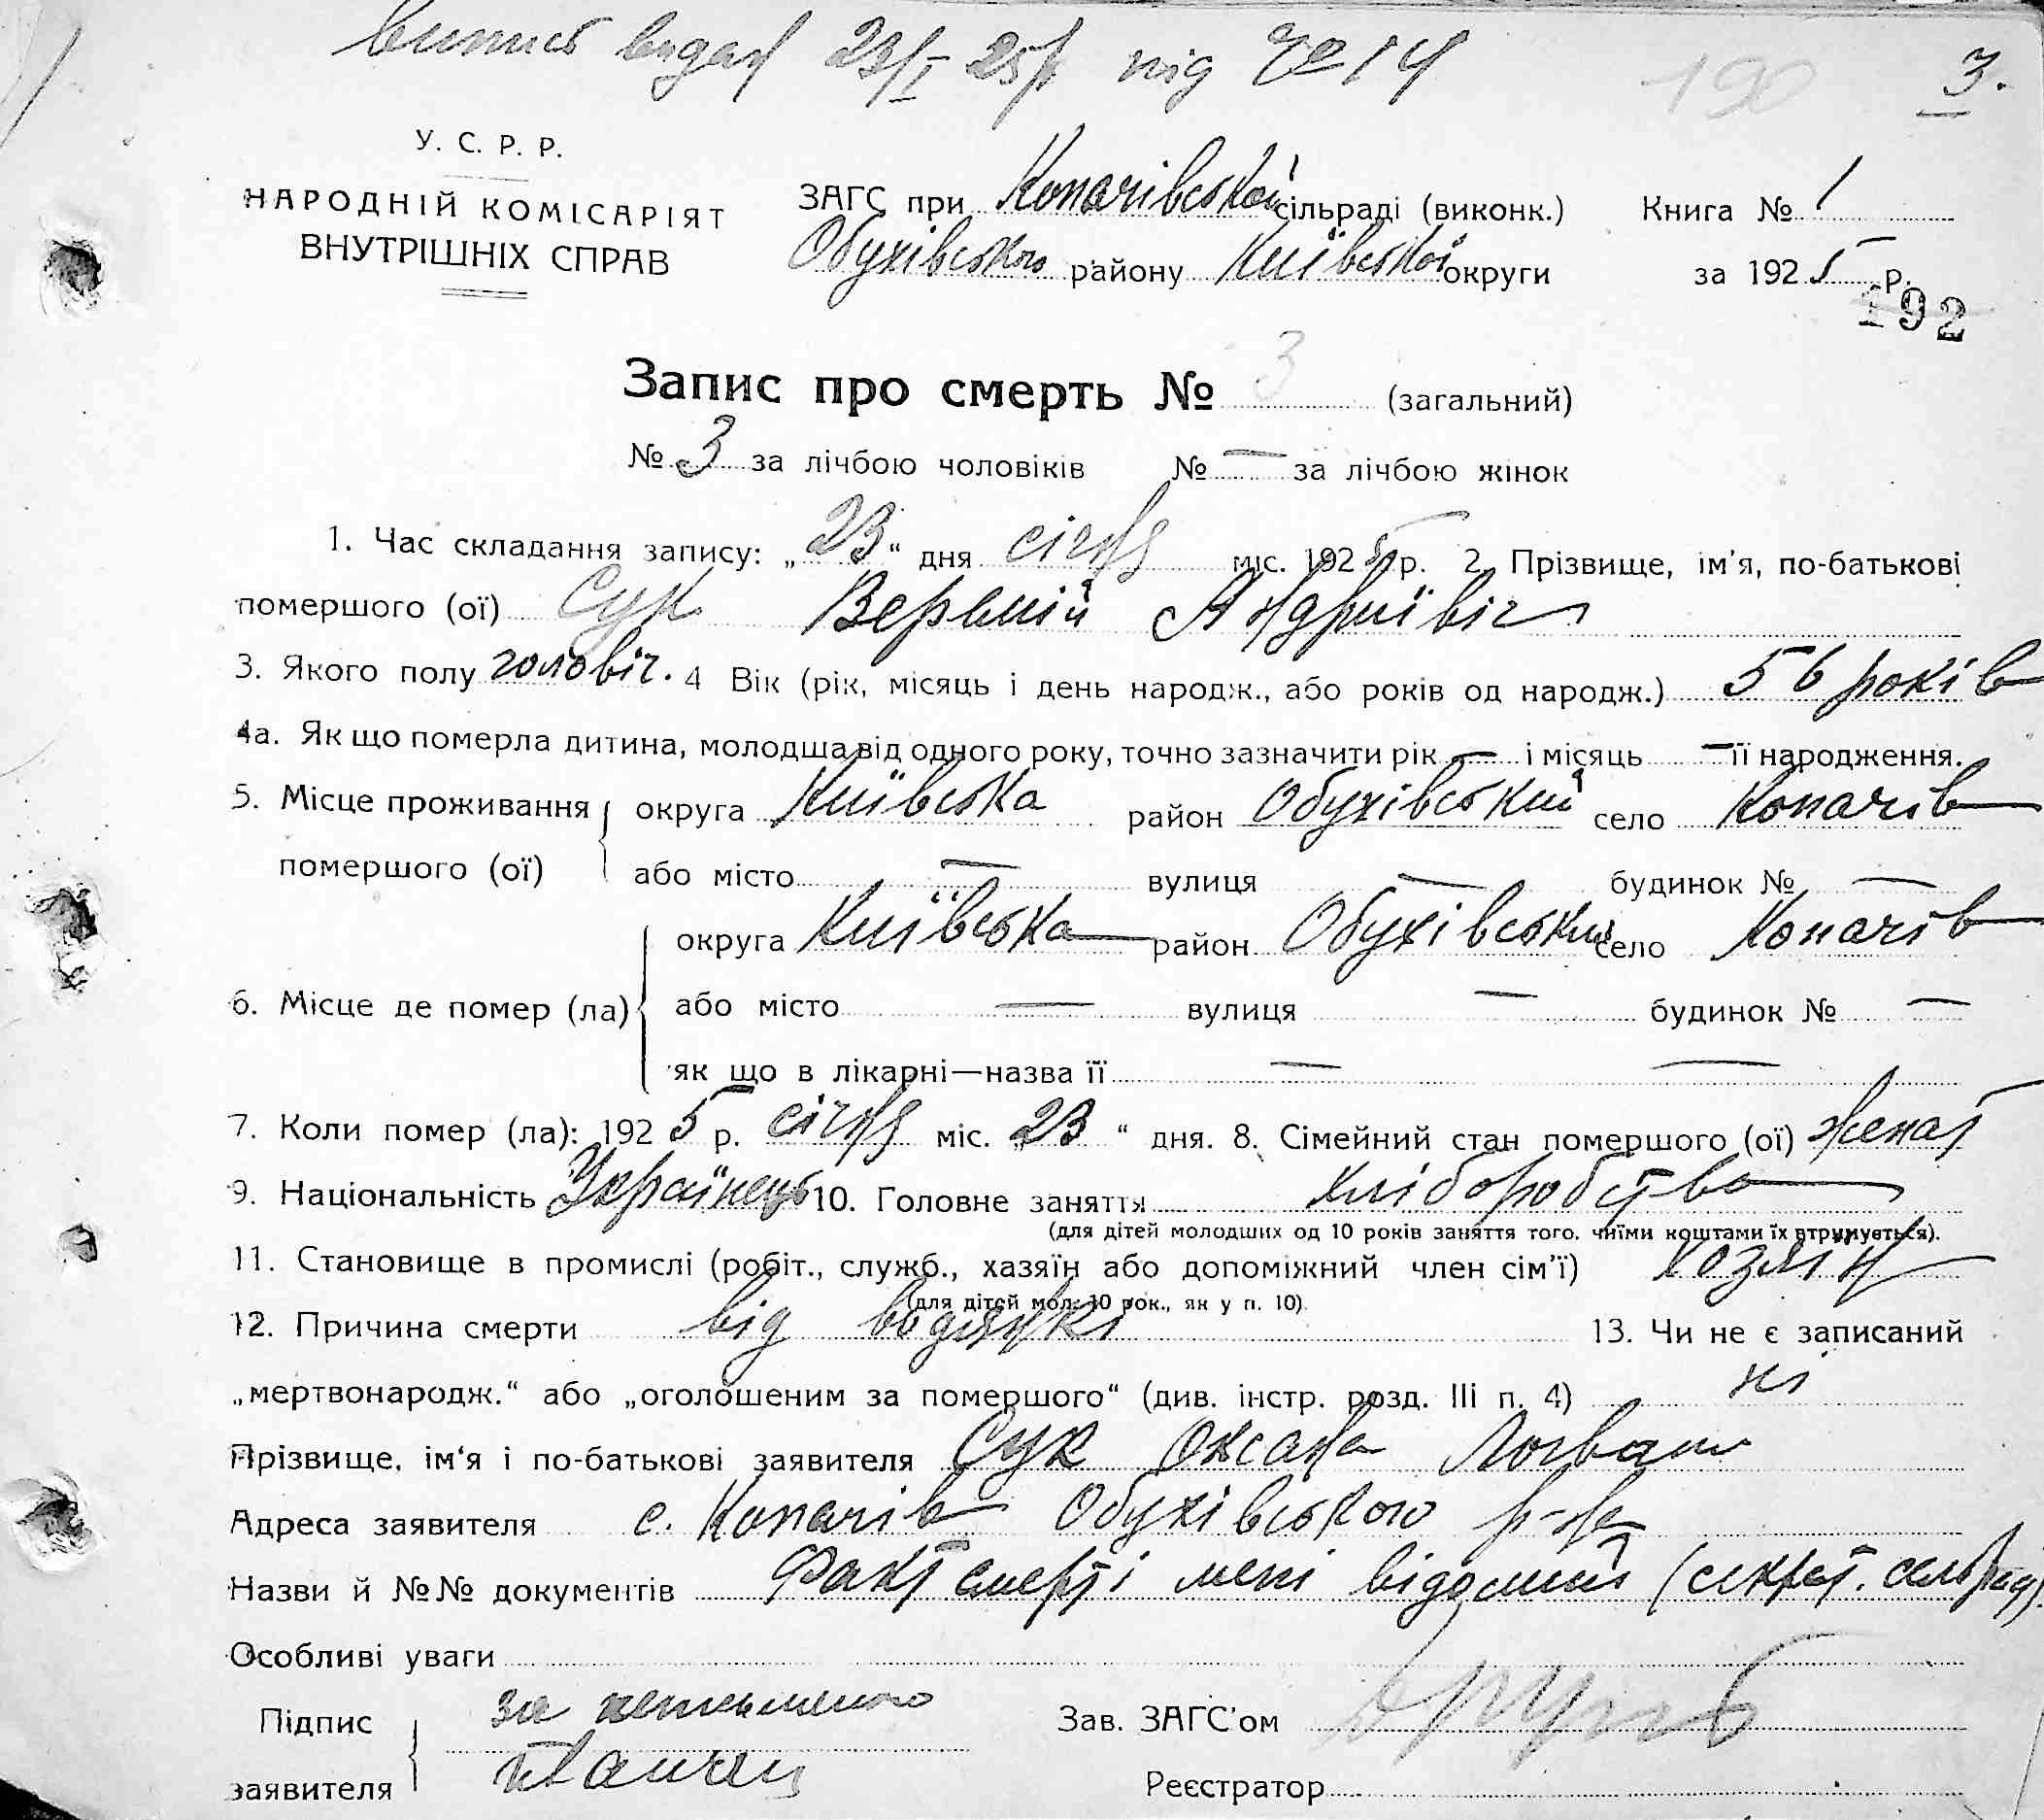 випись видав 23/I 25р. під № 14
190 3.
У. С. Р. Р.
НАРОДНІЙ КОМІСАРІЯТ
ВНУТРІШНІХ СПРАВ
ЗАГС при Копачівській сільраді (виконк.) Книга № 1
Обухівського району Київської округи за 1925 р.
192
Запис про смерть № 3 (загальний)
№ 3 за лічбою чоловіків № — за лічбою жінок
1. Час складання запису: „23“ дня січня міс. 1925 р. 2. Прізвище, ім'я, по-батькові
помершого (ої) Сук Вермій Андриївіч
3. Якого полу чоловіч. 4 Вік (рік, місяць і день народж., або років од народж.) 56 років
4а. Як що померла дитина, молодша від одного року, точно зазначити рік — і місяць — її народження.
5. Місце проживання помершого (ої) округа Київська район Обухівський село Копачів
або місто — вулиця — будинок № —
6. Місце де помер (ла) округа Київська район Обухівський село Копачів
або місто — вулиця — будинок № —
як що в лікарні—назва її — —
7. Коли помер (ла): 1925 р. січня міс. „23“ дня. 8. Сімейний стан помершого (ої) женат
9. Національність Українець 10. Головне заняття хліборобство
(для дітей молодших од 10 років заняття того, чиїми коштами їх втримується).
11. Становище в промислі (робіт., служб., хазяїн або допоміжний член сім'ї) хозяїн
(для дітей мол. 10 рок., як у п. 10).
12. Причина смерти від водянкі 13. Чи не є записаний
„мертвонародж.“ або „оголошеним за помершого“ (див. інстр. розд. III п. 4) ні
Прізвище, ім'я і по-батькові заявителя Сук Оксана
Адреса заявителя с. Копачів Обухівського р-на
Назви й №№ документів Факт смерті мені відомий (секрет. сельрад)
Особливі уваги
Підпис заявителя за неписьменого
Зав. ЗАГС'ом
Реєстратор